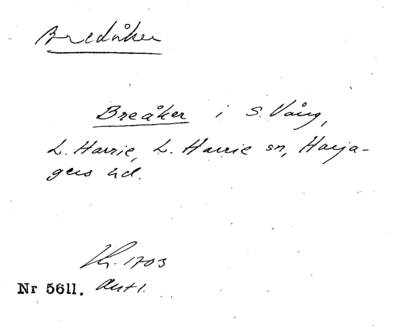 Bredåker
Breåker i S. Vång,
L. Harrie, L. Harrie sn, Harja-
gers hd.
1703
Nr 5611. Avt 1.